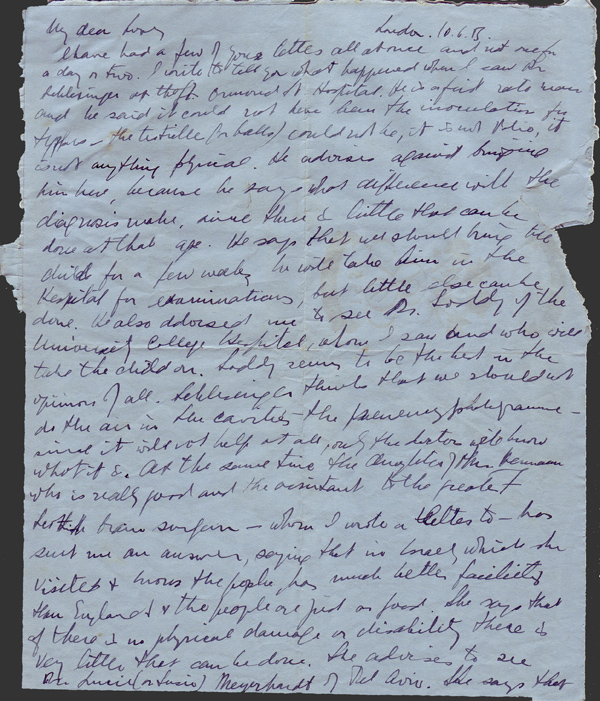 My dear
London. 10.6.
I have had a few of your letters all at once and not one for
a day or two. I write to tell you what happened when I saw Dr
Schlesinger at the Gt. Ormond St Hospital. He is a first rate man
and he said it could not have been the inoculation for
the (or balls) could not be, it is not Polio, it
is not anything physical. He advises against bringing
him here, because he says what difference will the
diagnosis make, since there is little that can be
done at that age. He says that we should bring the
child for a few weeks he will take him in the
Hospital for examinations, but little else can be
done. He also advised me to see Dr. Soddy of the
University College Hospital, whom I saw and who will
take the child on. Soddy seems to be the best in the
opinion of all. Schlesinger thinks that we should not
do the air in the cavities the
since it will not help at all, only the doctors will know
what it is. At the same time the daughter of Mrs
who is really good and the assistant to the greatest
brain surgeon – whom I wrote a letter to – has
sent me an answer, saying that in Israel, which she
visited & knows the people, has much better facilities
than England & the people are just as good. She says that
if there is no physical damage or disability there is
very little that can be done. She advises to see
Dr. Lucie (or Lucio) Meyerhardt of Tel Aviv. She says that